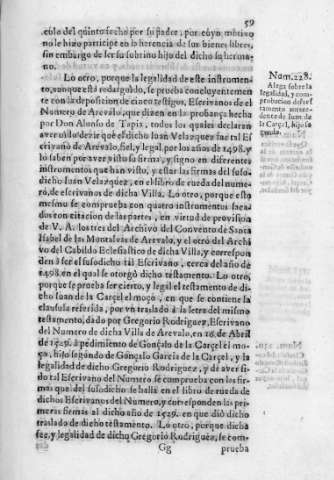 59
culo del quinto fecho por su padre: por cuyo motivo
no le hizo participe en la herencia de sus bienes libres,
sin embargo de ser su sobrino hijo del dicho su herma-
no.
Lo otro, porque la legalidad de este instrumen-
to, aunque està redarguido, se prueba concluyentemen-
te con la deposicion de cinco testigos, Escrivanos de el
Numero de Arevalo, que dizen en la probança hecha
por Don Alonso de Tapia, todos los quales declaran
aver oìdo dezir què el dicho Iuan Velazquez fue tal Es
crivano de Arevalo, fiel, y legal por los años de 1498. y
lo saben por aver visto su firma, y signo en diferentes
instrumentos que han visto, y estar las firmas del suso-
dicho Iuan Velazquez, en el libro de rueda del nume-
ro, de escrivanos de dicha Villa. Lo otro, porque esto
mesmo se comprueba con quatro instrumentos saca-
dos con citacion de las partes, en virtud de provision
de V. A. los tres del Archivo del Convento de Santa
Isabel de las Montalvas de Arevalo, y el otro del Archi
vo del Cabildo Eclesiastico de dicha Villa, y correspon
den à ser el susodicho tal Escrivano, cerca del año de
1498. en el qual se otorgò dicho testamento. Lo otro,
porque se prueba ser cierto, y legal el testamento de di-
cho Iuan de la Carçel el moço, en que se contiene la
clausula referida, por vn traslado à la letra del mismo
testamento, dado por Gregorio Rodriguez, Escrivano
del Numero de dicha Villa de Arevalo, en 28. de Abril
de 1529. à pedimiento de Gonçalo de la Carçel el mo-
ço, hijo segundo de Gonçalo Garcia de la Carçel, y la
legalidad de dicho Gregorio Rodriguez, y de aver si-
do tal Escrivano del Numero se comprueba con las fir-
mas que del susodicho se hallã en el libro de rueda de
dichos Escrivanos del Numero, y corresponden las pri-
meras firmas al dicho año de 1529. en que diò dicho
traslado de dicho testamento. Lo otro, porque dicha
fee, y legalidad de dicho Gregorio Rodriguez, se com-
Gg prueba
Num. 228.
Alega sobre la
legalidad, y com-
probacion del tes-
tamento antece-
dente de Iuan de
la Carçel, hijo se
gundo.